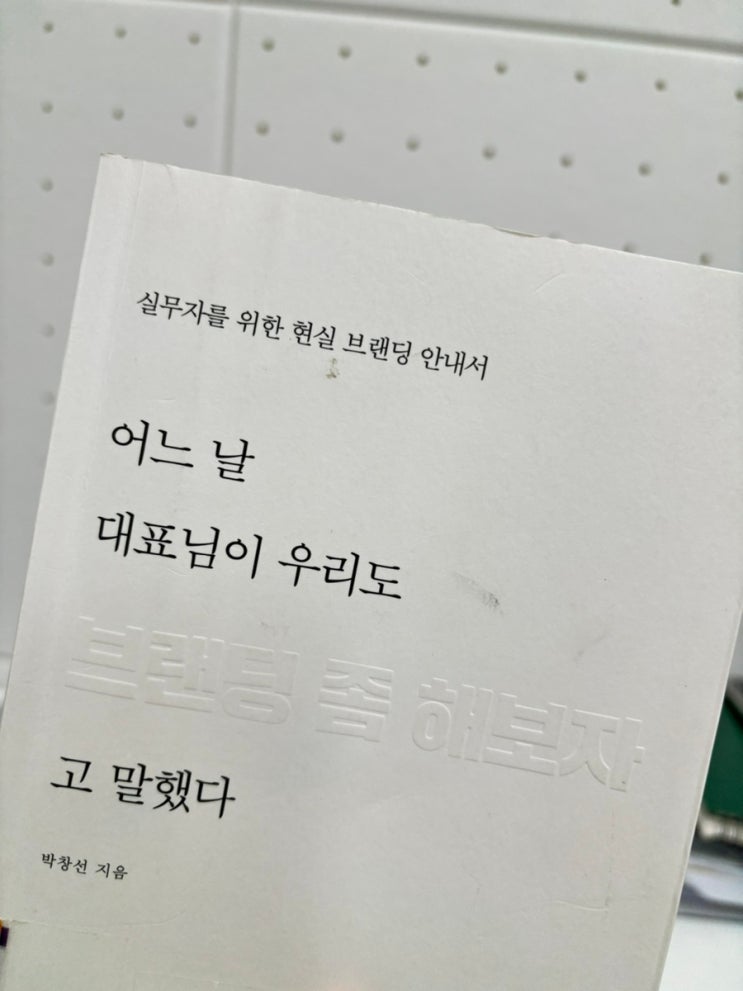 실무자를 위한 현실 브랜딩 안내서
어느 날
대표님이 우리도
브랜딩 좀 해보자
고 말했다
박창선 지음